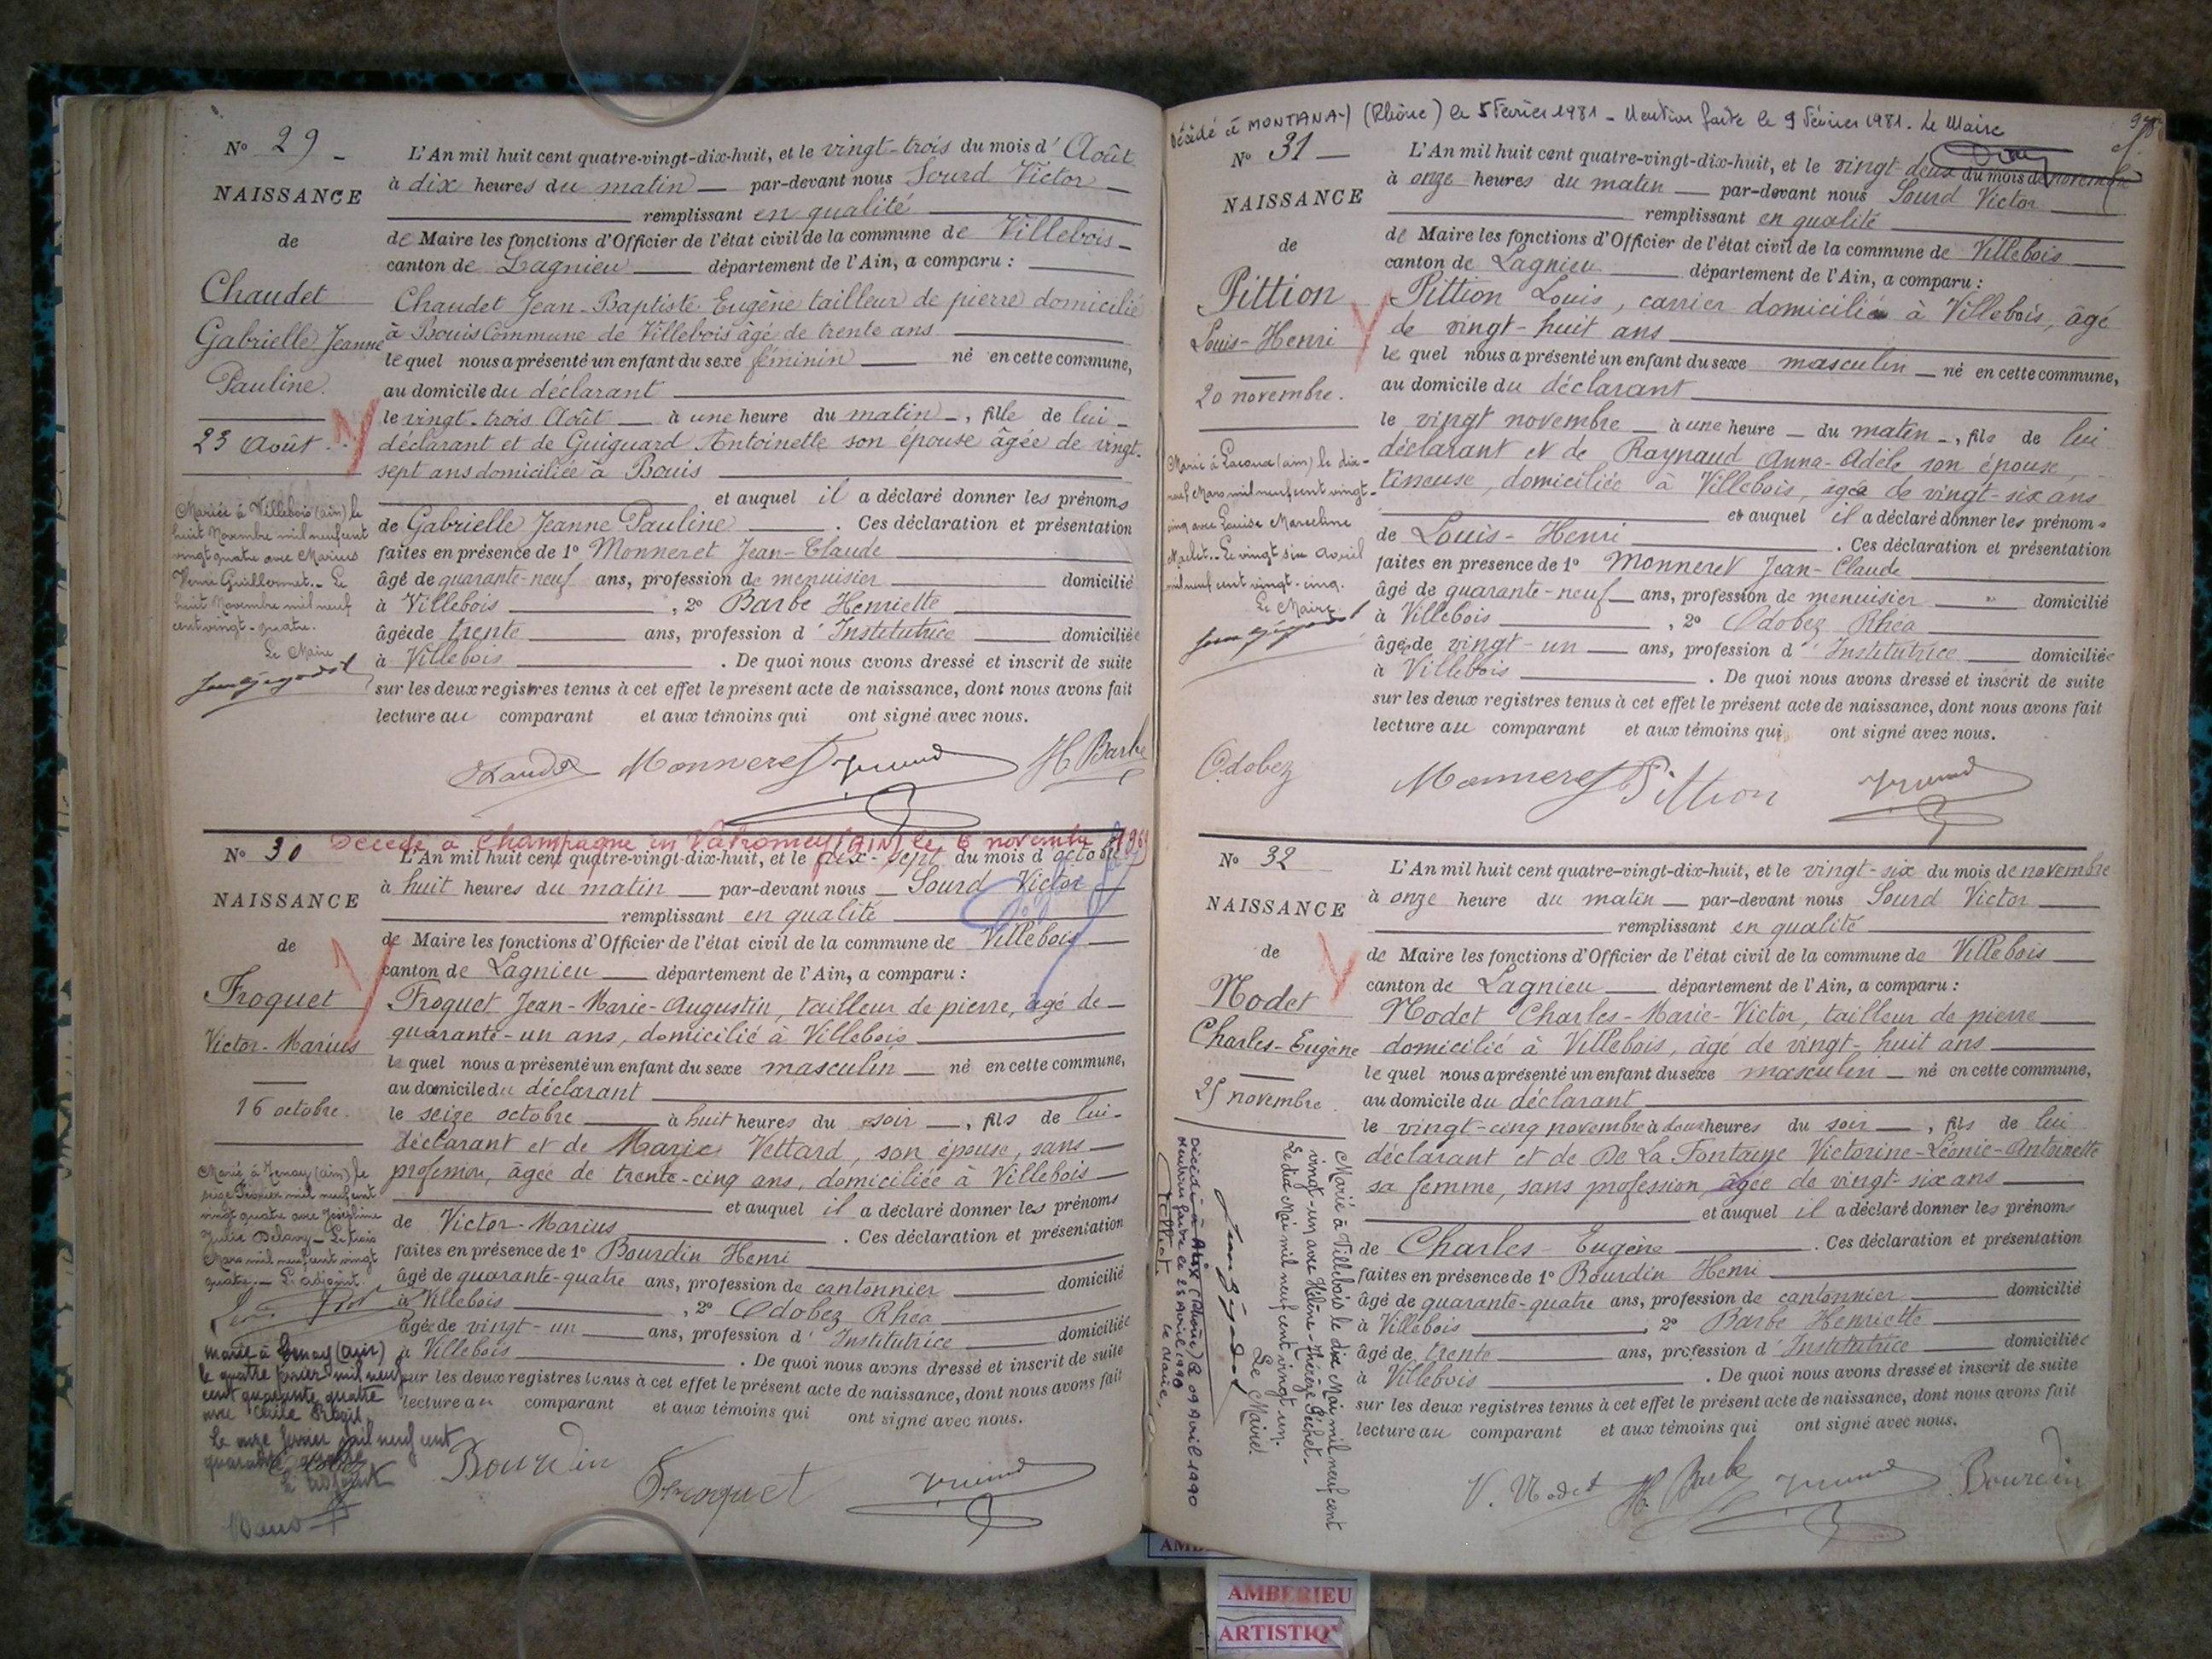 Nº 29
NAISSANCE
de
Chaudet
Gabrielle Jeanne
Pauline.
23 Août
Mariée à Villebois (ain) le
huit Novembre mil neuf cent
vingt quatre avec Marius
Guillermet. - Le
huit Novembre mil neuf
cent vingt-quatre.
Le Maire
L'An mil huit cent quatre-vingt-dix-huit, et le vingt-trois du mois d'Août
à dix heures du matin par-devant nous Sourd Victor
remplissant en qualité
de Maire les fonctions d'Officier de l'état civil de la commune de Villebois
canton de Lagnieu département de l'Ain, a comparu :
Chaudet Jean-Baptiste Eugène tailleur de pierre domicilié
à Bouis Commune de Villebois âgé de trente ans
lequel nous a présenté un enfant du sexe féminin né en cette commune,
au domicile du déclarant
le vingt-trois Août à une heure du matin, fille de lui
déclarant et de Guiguard Antoinette son épouse âgée de vingt-
sept ans domiciliée à Bouis
et auquel il a déclaré donner les prénoms
de Gabrielle Jeanne Pauline. Ces déclaration et présentation
faites en présence de 1º Monneret Jean-Claude
âgé de quarante-neuf ans, profession de menuisier domicilié
à Villebois, 2º Barbe Henriette
âgée de trente ans, profession d'Institutrice domiciliée
à Villebois. De quoi nous avons dressé et inscrit de suite
sur les deux registres tenus à cet effet le présent acte de naissance, dont nous avons fait
lecture au comparant et aux témoins qui ont signé avec nous.
Monneret H Barbe
Décédé à Champagne en Valromey (AIN) le 6 novembre
Nº 30
NAISSANCE
de
Froquet
Victor-Marius
16 octobre.
Marié à Tenay (ain) le
seize Février mil neuf cent
vingt quatre avec Joséphine
Julie Delavoy - Le trois
Mars mil neuf cent vingt
quatre. - L'adjoint.
Marié à Tenay (ain)
le quatre février mil neuf
cent quarante quatre
avec
Le onze février mil neuf cent
quarante quatre
L'An mil huit cent quatre-vingt-dix-huit, et le dix-sept du mois d'octobre
à huit heures du matin par-devant nous Sourd Victor
remplissant en qualité
de Maire les fonctions d'Officier de l'état civil de la commune de Villebois
canton de Lagnieu département de l'Ain, a comparu :
Froquet Jean-Marie-Augustin, tailleur de pierre, âgé de
quarante-un ans, domicilié à Villebois
lequel nous a présenté un enfant du sexe masculin né en cette commune,
au domicile du déclarant
le seize octobre à huit heures du soir, fils de lui-
déclarant et de Marie Vettard, son épouse, sans
profession, âgée de trente-cinq ans, domiciliée à Villebois
et auquel il a déclaré donner les prénoms
de Victor-Marius. Ces déclaration et présentation
faites en présence de 1º Bourdin Henri
âgé de quarante-quatre ans, profession de cantonnier domicilié
à Villebois, 2º Odobez Rhéa
âgée de vingt-un ans, profession d'Institutrice domiciliée
à Villebois. De quoi nous avons dressé et inscrit de suite
sur les deux registres tenus à cet effet le présent acte de naissance, dont nous avons fait
lecture au comparant et aux témoins qui ont signé avec nous.
Bourdin Froquet
Décédé à MONTANAY (Rhône) le 5 Février 1981 - Mention faite le 9 Février 1981. Le Maire
Nº 31
NAISSANCE
de
Pittion
Louis-Henri
20 novembre.
Marié à Lacoux (ain) le dix-
neuf Mars mil neuf cent vingt-
cinq avec Louise Marceline
Le vingt six Avril
mil neuf cent vingt-cinq.
Le Maire.
L'An mil huit cent quatre-vingt-dix-huit, et le vingt-deux du mois de novembre
à onze heures du matin par-devant nous Sourd Victor
remplissant en qualité
de Maire les fonctions d'Officier de l'état civil de la commune de Villebois
canton de Lagnieu département de l'Ain, a comparu :
Pittion Louis, carrier domicilié à Villebois, âgé
de vingt-huit ans
lequel nous a présenté un enfant du sexe masculin né en cette commune,
au domicile du déclarant
le vingt novembre à une heure du matin, fils de lui
déclarant et de Raynaud Anna-Adèle son épouse,
tisseuse, domiciliée à Villebois, âgée de vingt-six ans
et auquel il a déclaré donner les prénoms
de Louis-Henri. Ces déclaration et présentation
faites en présence de 1º Monneret Jean-Claude
âgé de quarante-neuf ans, profession de menuisier domicilié
à Villebois, 2º Odobez Rhéa
âgée de vingt-un ans, profession d'Institutrice domiciliée
à Villebois. De quoi nous avons dressé et inscrit de suite
sur les deux registres tenus à cet effet le présent acte de naissance, dont nous avons fait
lecture au comparant et aux témoins qui ont signé avec nous.
Odobez Monneret Pittion
Nº 32
NAISSANCE
de
Nodet
Charles-Eugène
25 novembre
Marié à Villebois le dix Mai mil neuf cent
vingt-un avec Hélène-Thérèze Péchet.
Le dix Mai mil neuf cent vingt un.
Le Maire.
09 Avril 1990
Mention faite le 25 Avril 1990
Le Maire,
L'An mil huit cent quatre-vingt-dix-huit, et le vingt-six du mois de novembre
à onze heure du matin par-devant nous Sourd Victor
remplissant en qualité
de Maire les fonctions d'Officier de l'état civil de la commune de Villebois
canton de Lagnieu département de l'Ain, a comparu :
Nodet Charles-Marie-Victor, tailleur de pierre
domicilié à Villebois, âgé de vingt-huit ans
lequel nous a présenté un enfant du sexe masculin né en cette commune,
au domicile du déclarant
le vingt-cinq novembre à deux heures du soir, fils de lui
déclarant et de De La Fontaine Victorine-Léonie-Antoinette
sa femme, sans profession, âgée de vingt-six ans
et auquel il a déclaré donner les prénoms
de Charles-Eugène. Ces déclaration et présentation
faites en présence de 1º Bourdin Henri
âgé de quarante-quatre ans, profession de cantonnier domicilié
à Villebois, 2º Barbe Henriette
âgée de trente ans, profession d'Institutrice domiciliée
à Villebois. De quoi nous avons dressé et inscrit de suite
sur les deux registres tenus à cet effet le présent acte de naissance, dont nous avons fait
lecture au comparant et aux témoins qui ont signé avec nous.
V. Nodet H. Barbe Bourdin
AMBERIEU
ARTISTIQ